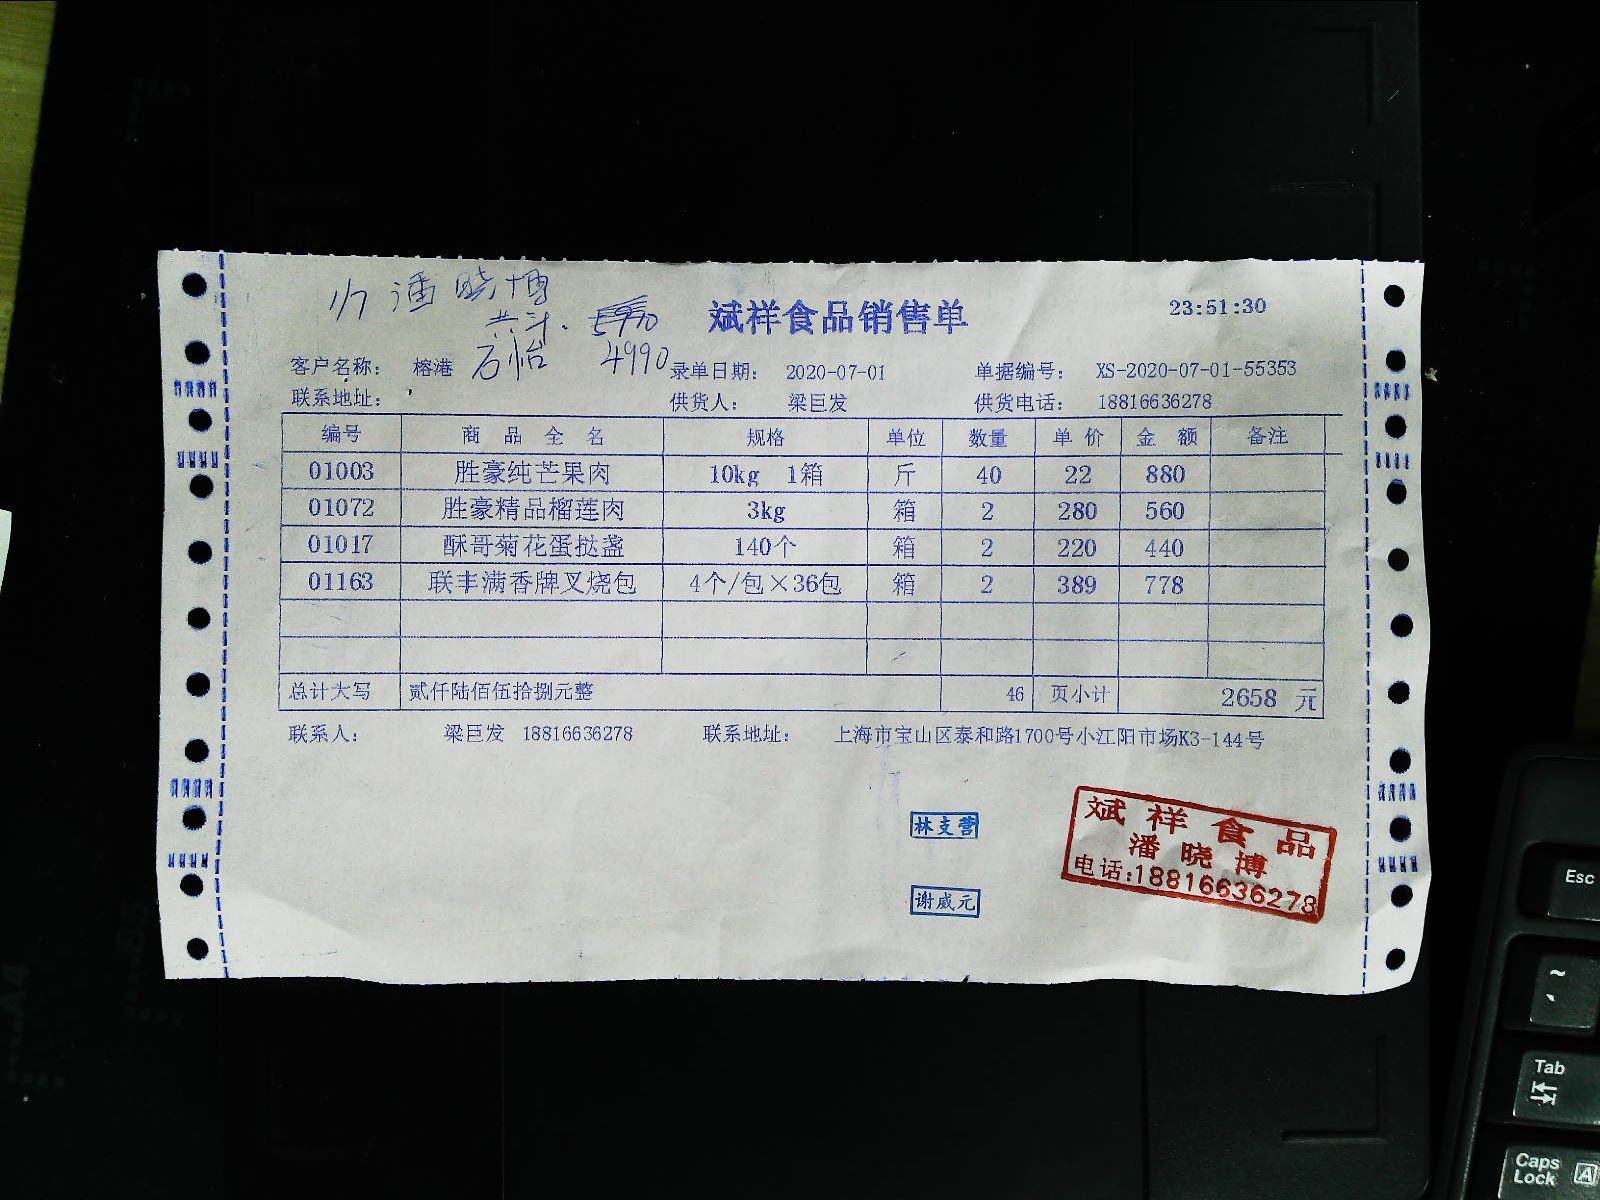 1/7 潘晓博
共计. 5970
斌祥食品销售单
23:51:30
石怡 4990
客户名称： 榕港 录单日期： 2020-07-01 单据编号： XS-2020-07-01-55353
联系地址： 供货人： 梁巨发 供货电话： 18816636278
编号 商品全名 规格 单位 数量 单价 金额 备注
01003 胜豪纯芒果肉 10kg 1箱 斤 40 22 880
01072 胜豪精品榴莲肉 3kg 箱 2 280 560
01017 酥哥菊花蛋挞盏 140个 箱 2 220 440
01163 联丰满香牌叉烧包 4个/包×36包 箱 2 389 778
总计大写 贰仟陆佰伍拾捌元整 46 页小计 2658 元
联系人： 梁巨发 18816636278 联系地址： 上海市宝山区泰和路1700号小江阳市场K3-144号
林支营
谢威元
斌祥食品
潘晓博
电话:18816636278
Esc
~
Tab
Caps Lock A